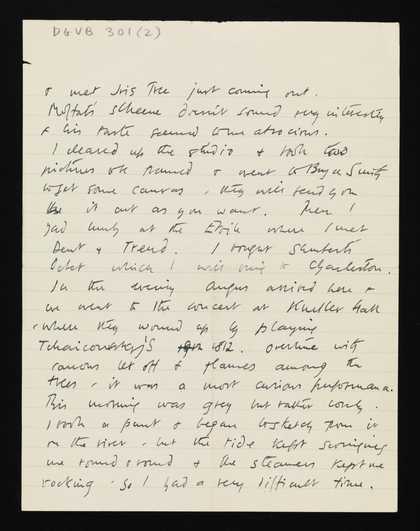 DGVB 301(2)
& met Iris Tree just coming out.
Moffat's scheme doesn't sound very interesting
& his taste seemed to me atrocious.
I cleared up the studio & took two
pictures to be framed & went to Bryce Smith
to get some canvas, they will send you
it out as you want. Then I
had lunch at the Etoile where I met
Dent & Trend. I bought Schubert's
Octet which I will bring to Charleston.
In the evening Angus arrived here &
we went to the concert at Kneller Hall
where they wound up by playing
Tchaicovsky's 1812. overture with
canons let off & flames among the
trees, it was a most curious performance.
This morning was grey but rather lovely.
I took a punt & began to sketch from it
on the river, but the tide kept swinging
me round & round & the steamers kept me
rocking. So I had a very difficult time.